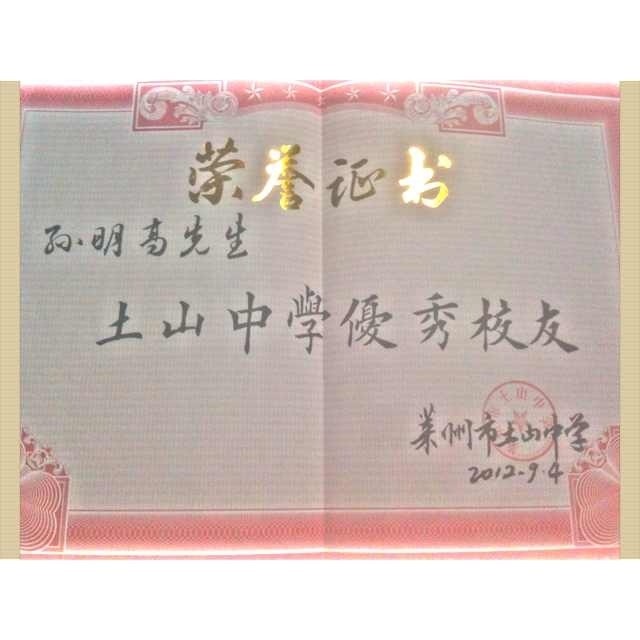 荣誉证书
孙明高先生
土山中學優秀校友
莱州市土山中学
2012.9.4